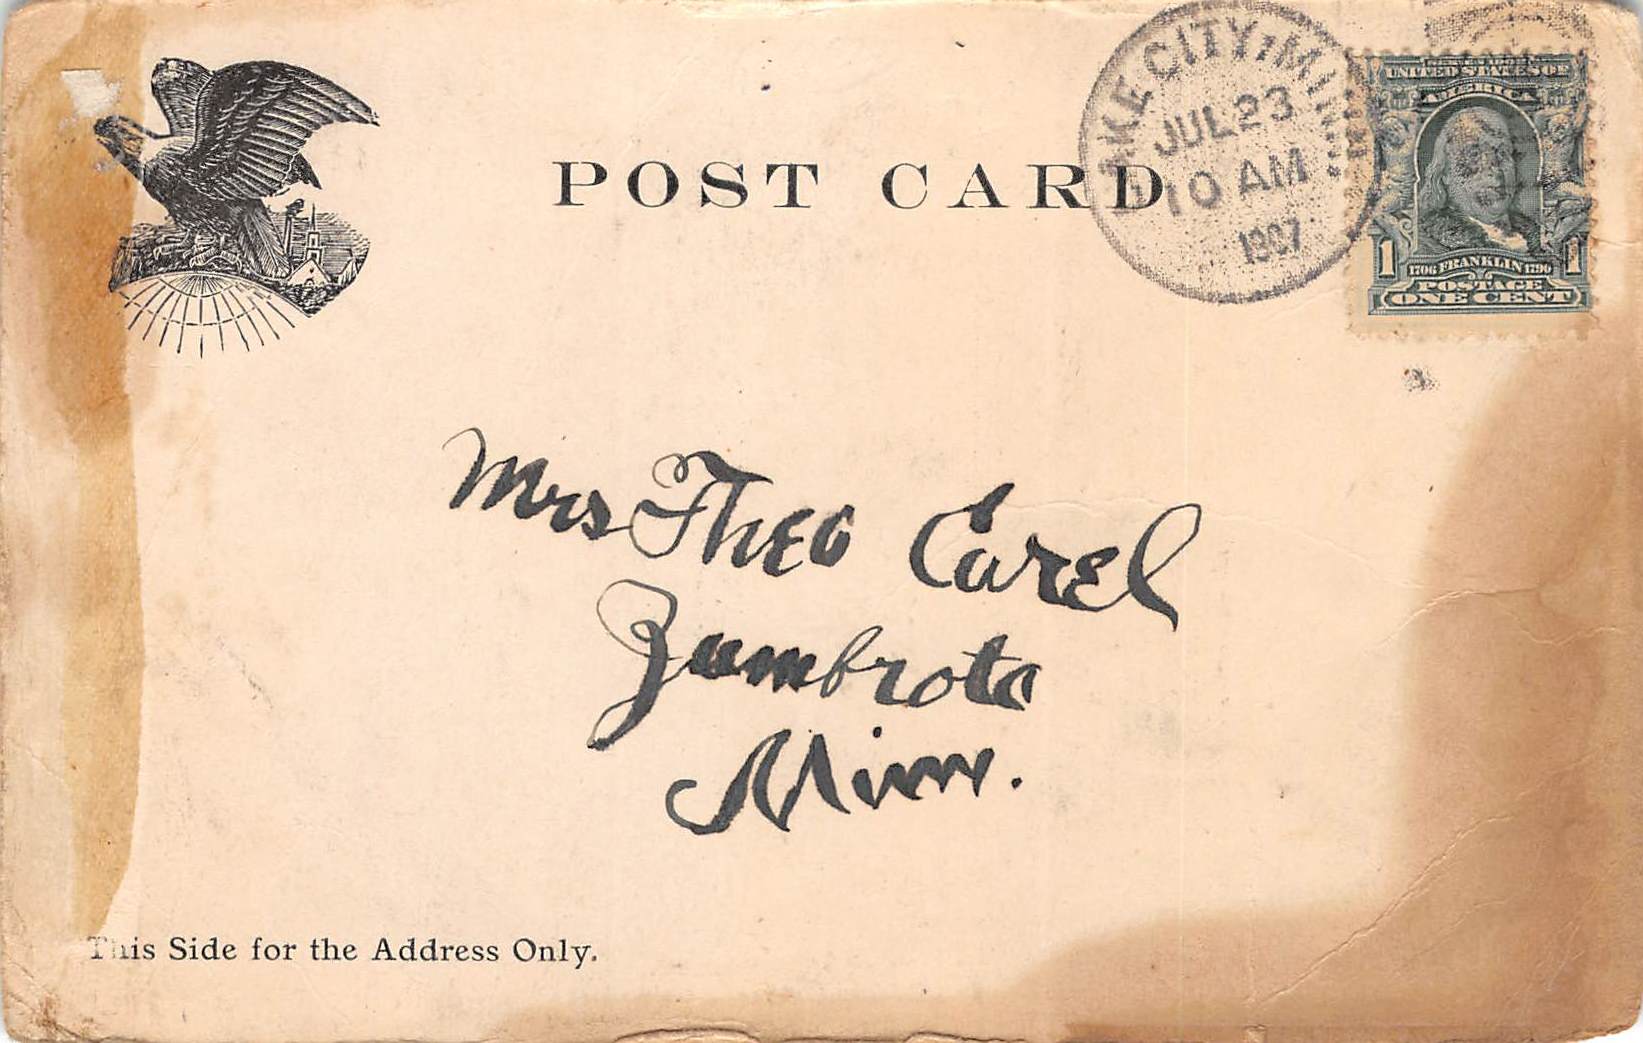 POST CARD
LAKE CITY, MINN.
JUL 23
10 AM
1907
UNITED STATES OF
AMERICA
1 1706 FRANKLIN 1790 1
POSTAGE
ONE CENT
Mrs Theo Carel
Zumbrota
Minn.
This Side for the Address Only.